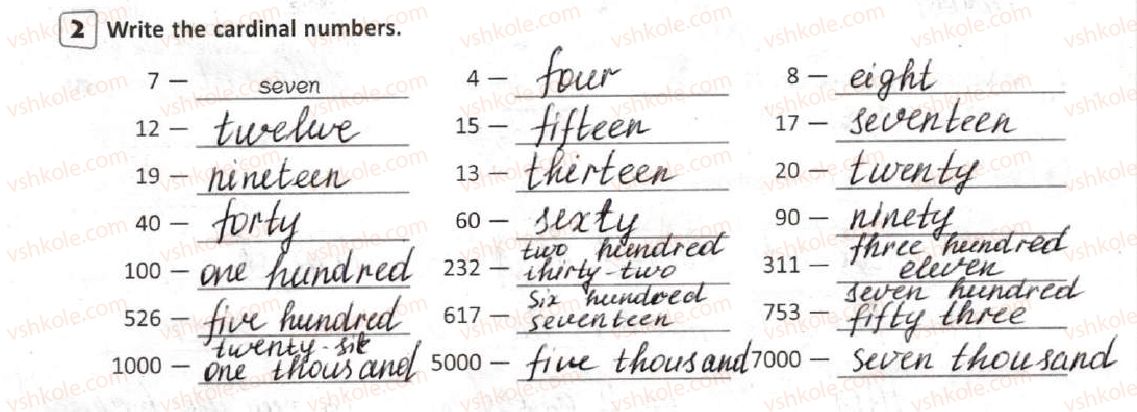 2 Write the cardinal numbers.
7 — seven 4 — four 8 — eight
12 — twelwe 15 — fifteen 17 — seventeen
19 — nineteen 13 — thirteen 20 — twenty
40 — forty 60 — sexty 90 — ninety
100 — one hundred 232 — two hundred thirty-two 311 — three hundred eleven
526 — five hundred twenty-six 617 — six hundred seventeen 753 — seven hundred fifty three
1000 — one thousand 5000 — five thousand 7000 — seven thousand
vshkole.com